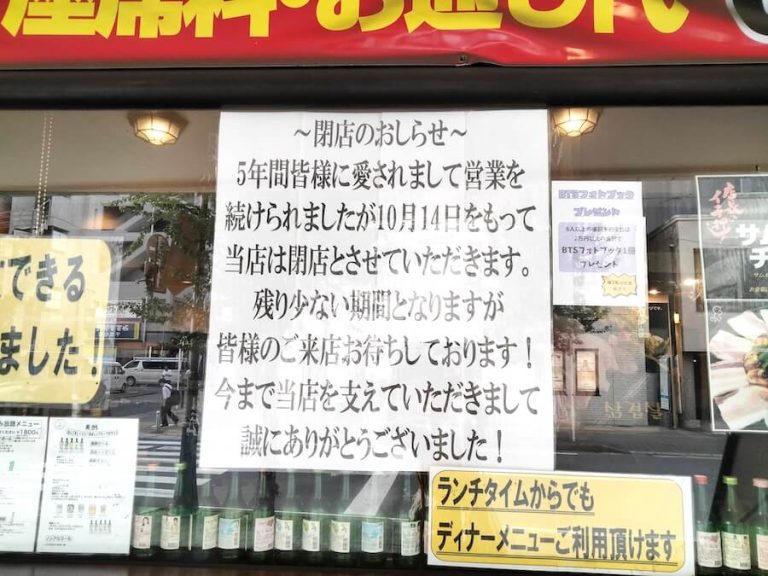 座席料・お通し代
～閉店のおしらせ～
5年間皆様に愛されまして営業を
続けられましたが10月14日をもって
当店は閉店とさせていただきます。
残り少ない期間となりますが
皆様のご来店お待ちしております！
今まで当店を支えていただきまして
誠にありがとうございました！
できる
ました！
BTSフォトブック
プレゼント
2万円以上のお会計で
BTSフォトブック1冊
プレゼント
サム
チ
ランチタイムからでも
ディナーメニューご利用頂けます